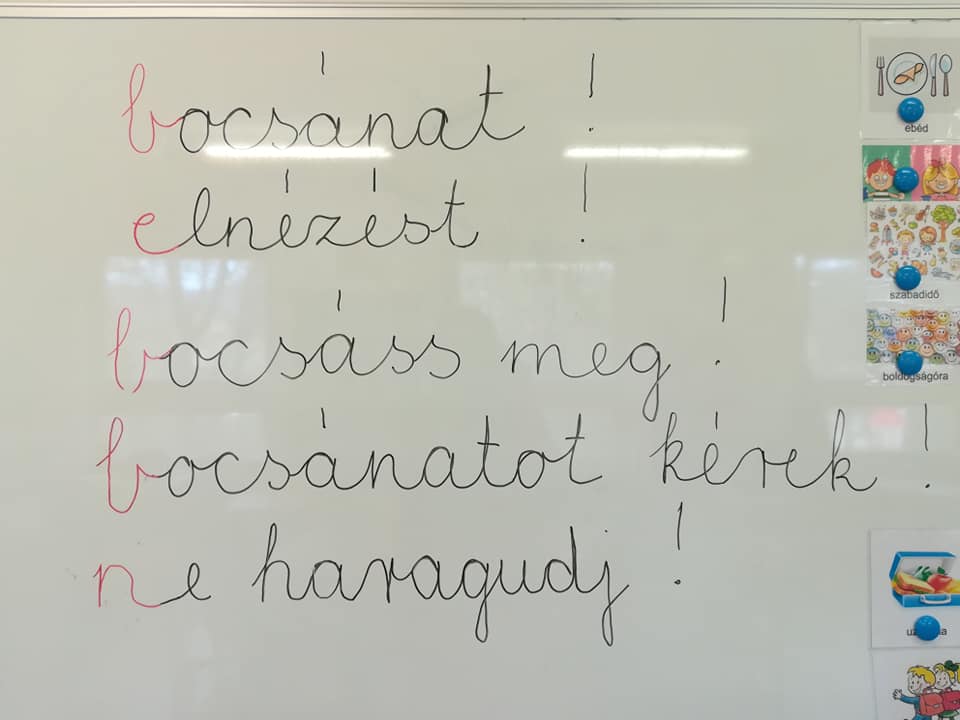 bocsánat !
elnézést !
bocsáss meg !
bocsánatot kérek !
ne haragudj !
ebéd
szabadidő
boldogságóra